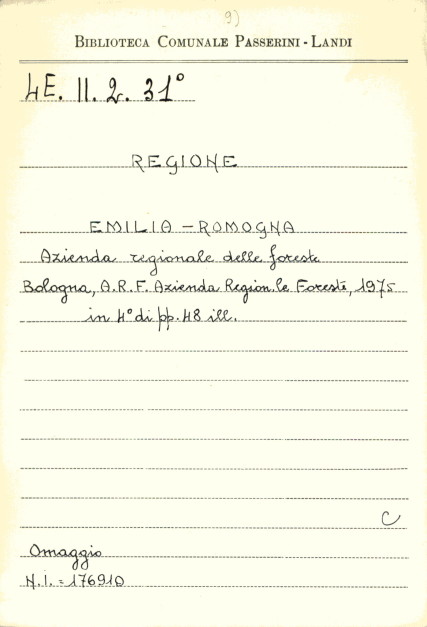 9)
BIBLIOTECA COMUNALE PASSERINI - LANDI
4E. II. 2. 31°
REGIONE
EMILIA - ROMOGNA
Azienda regionale delle foreste
Bologna, A.R.F. Azienda Region.le Foreste, 1975
in 4° di pp. 48 ill.
C
Omaggio
N.i. = 176910